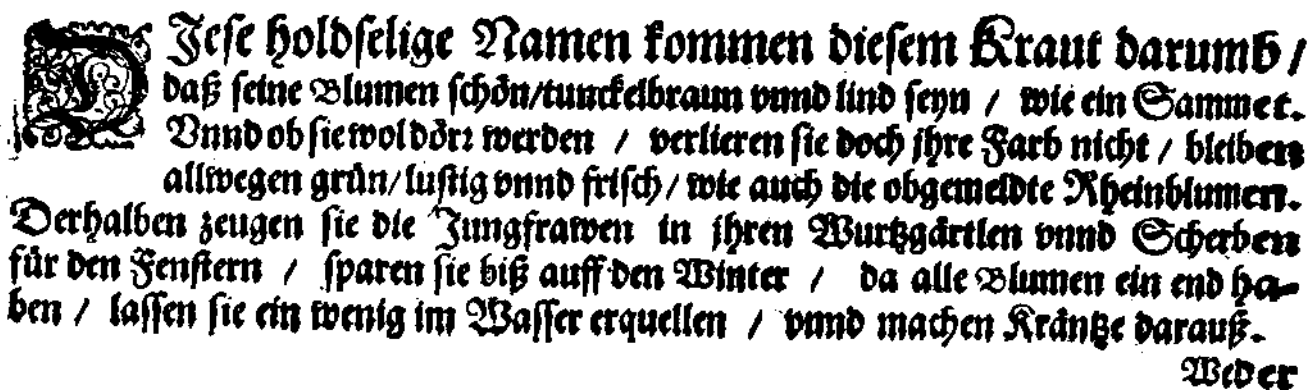 DJese holdselige Namen kommen diesem Kraut darumb /
daß seine Blumen schön/tunckelbraun vnnd lind seyn / wie ein Sammet.
Vnnd ob sie wol dörr werden / verlieren sie doch jhre Farb nicht / bleiben
allwegen grün/lustig vnnd frisch/ wie auch die obgemeldte Rheinblumen.
Derhalben zeugen sie die Jungfrawen in jhren Wurtzgärtlen vnnd Scherben
für den Fenstern / sparen sie biß auff den Winter / da alle Blumen ein end ha-
ben / lassen sie ein wenig im Wasser erquellen / vnnd machen Kräntze darauß.
Weder